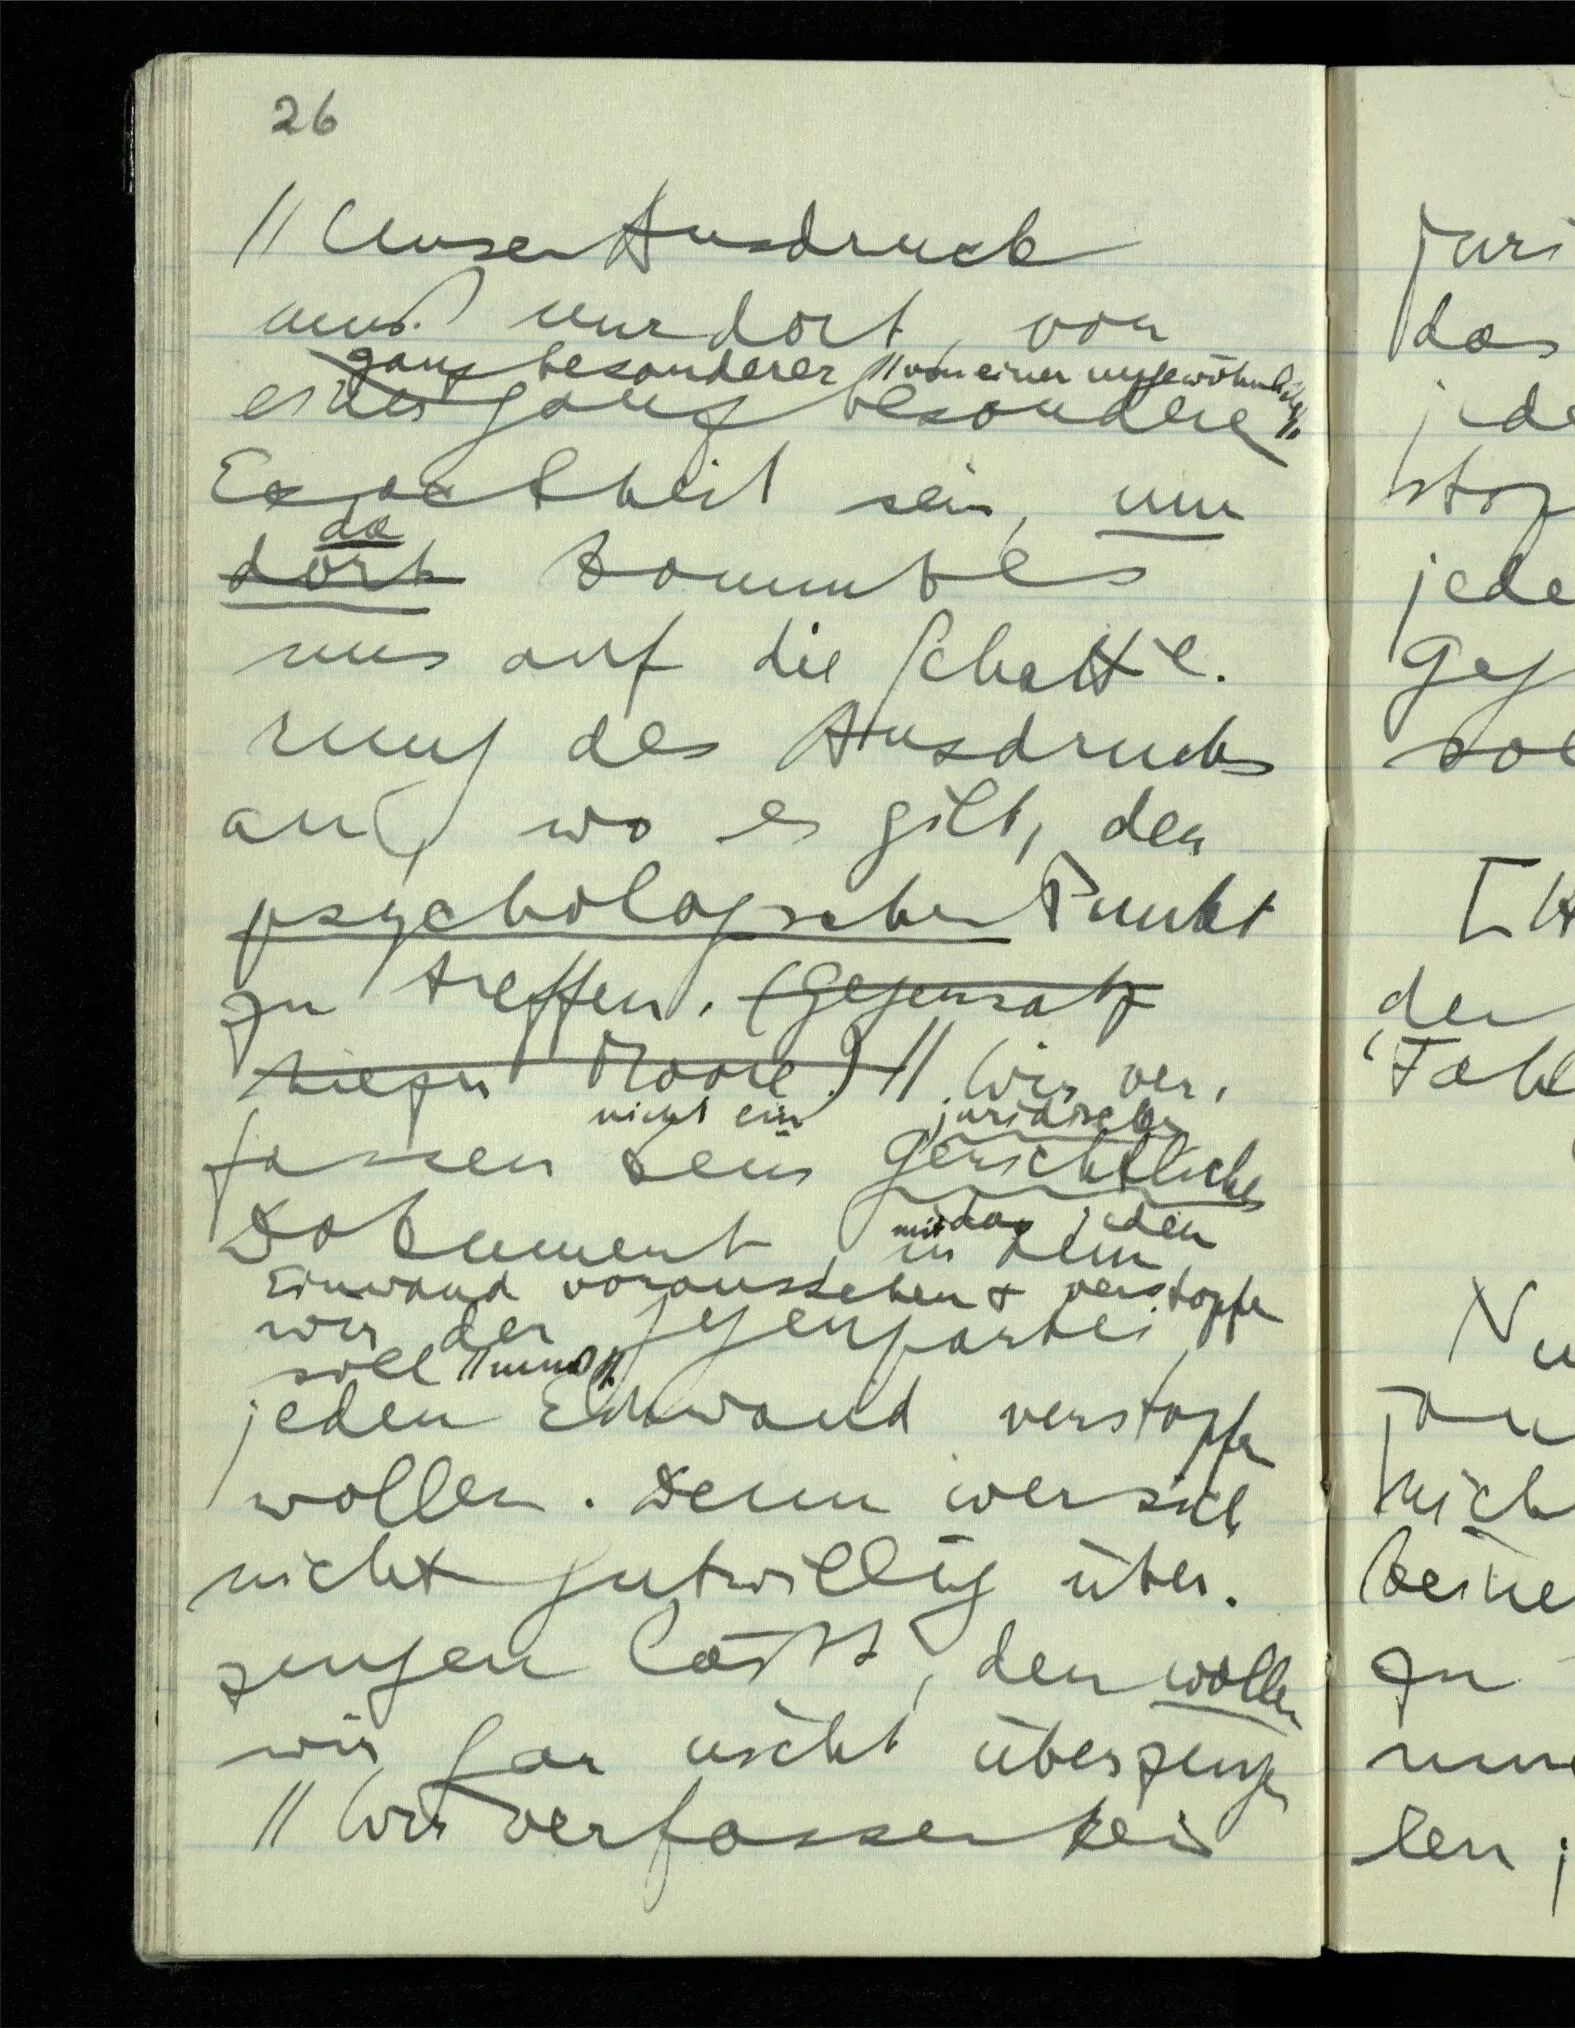 26
// Unser Ausdruck
muß nur dort, von
ganz besonderer // von einer ungewöhnlichen //
einer ganz besondere
Exactheit sein, nur
da
dort kommt es
uns auf die Schattie-
rung des Ausdrucks
an, wo es gilt, den
psychologischen Punkt
zu treffen. (Gegensatz
hiezu Moore.) // Wir ver-
nicht ein juridisches
fassen kein gerichtliches
Dokument
mit das jeden
in dem
Einwand voraussehen & verstopfen
wir der Gegenpartei
soll // muß //
jeden Einwand verstopfen
wollen. Denn wer sich
nicht gutwillig über-
zeugen läßt, den wollen
wir gar nicht überzeugen
// Wir verfassen kein
juri
das
jede
stop
jede
Geg
sol
den
Nu
nich
keine
zu
len